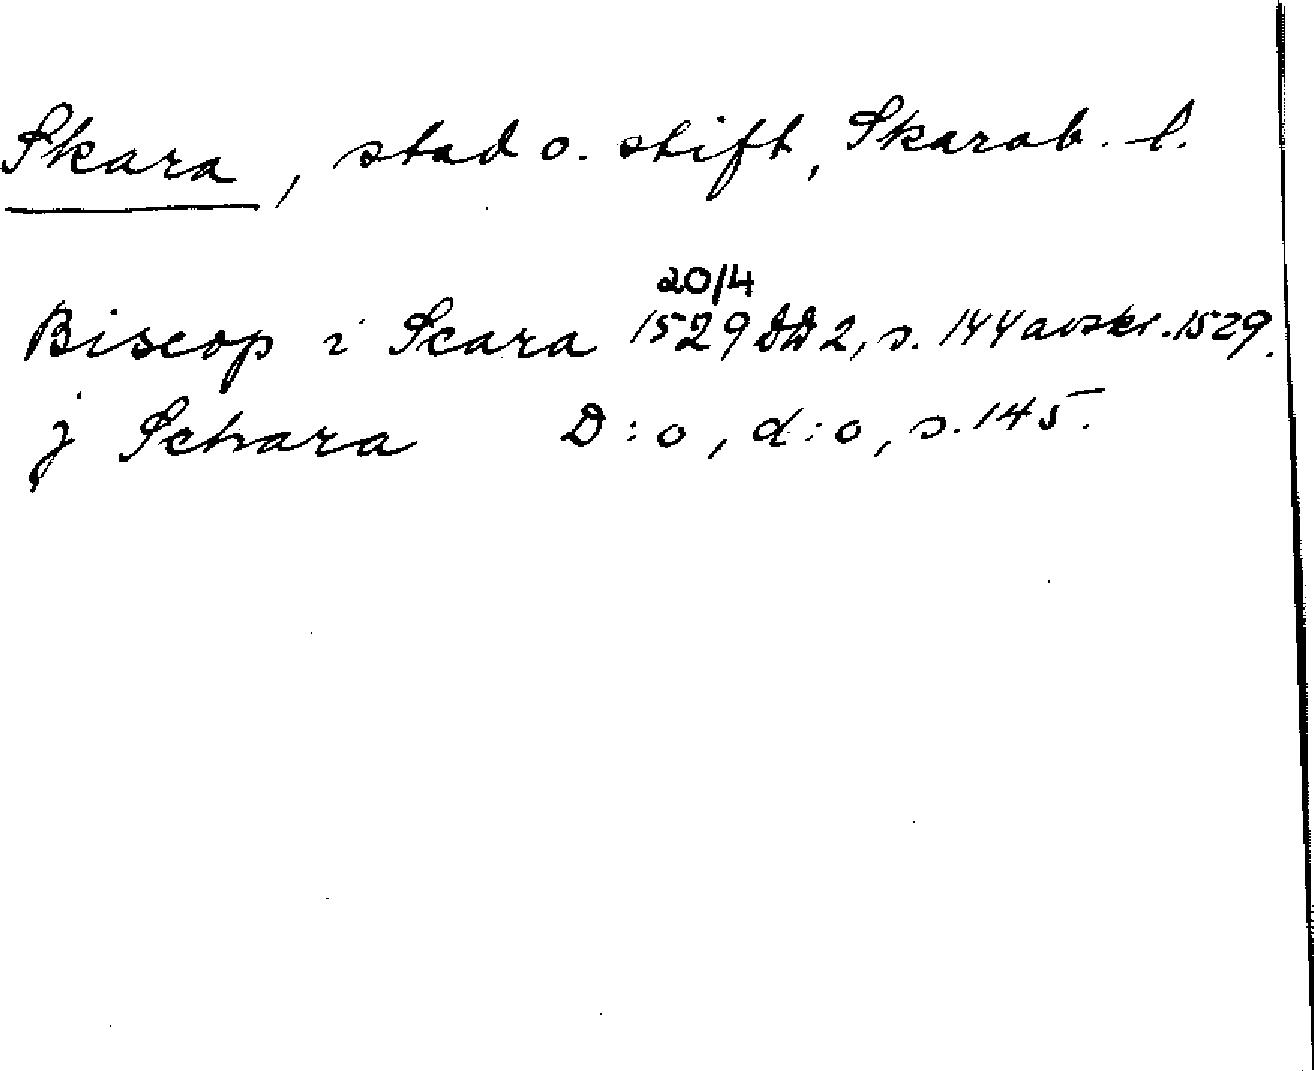 Skara, stad o. stift, Skarab. l.
20/4
Biscop i Scara 1529 DD 2, s. 144 avskr. 1529.
j Schara D:o, d:o, s. 145.